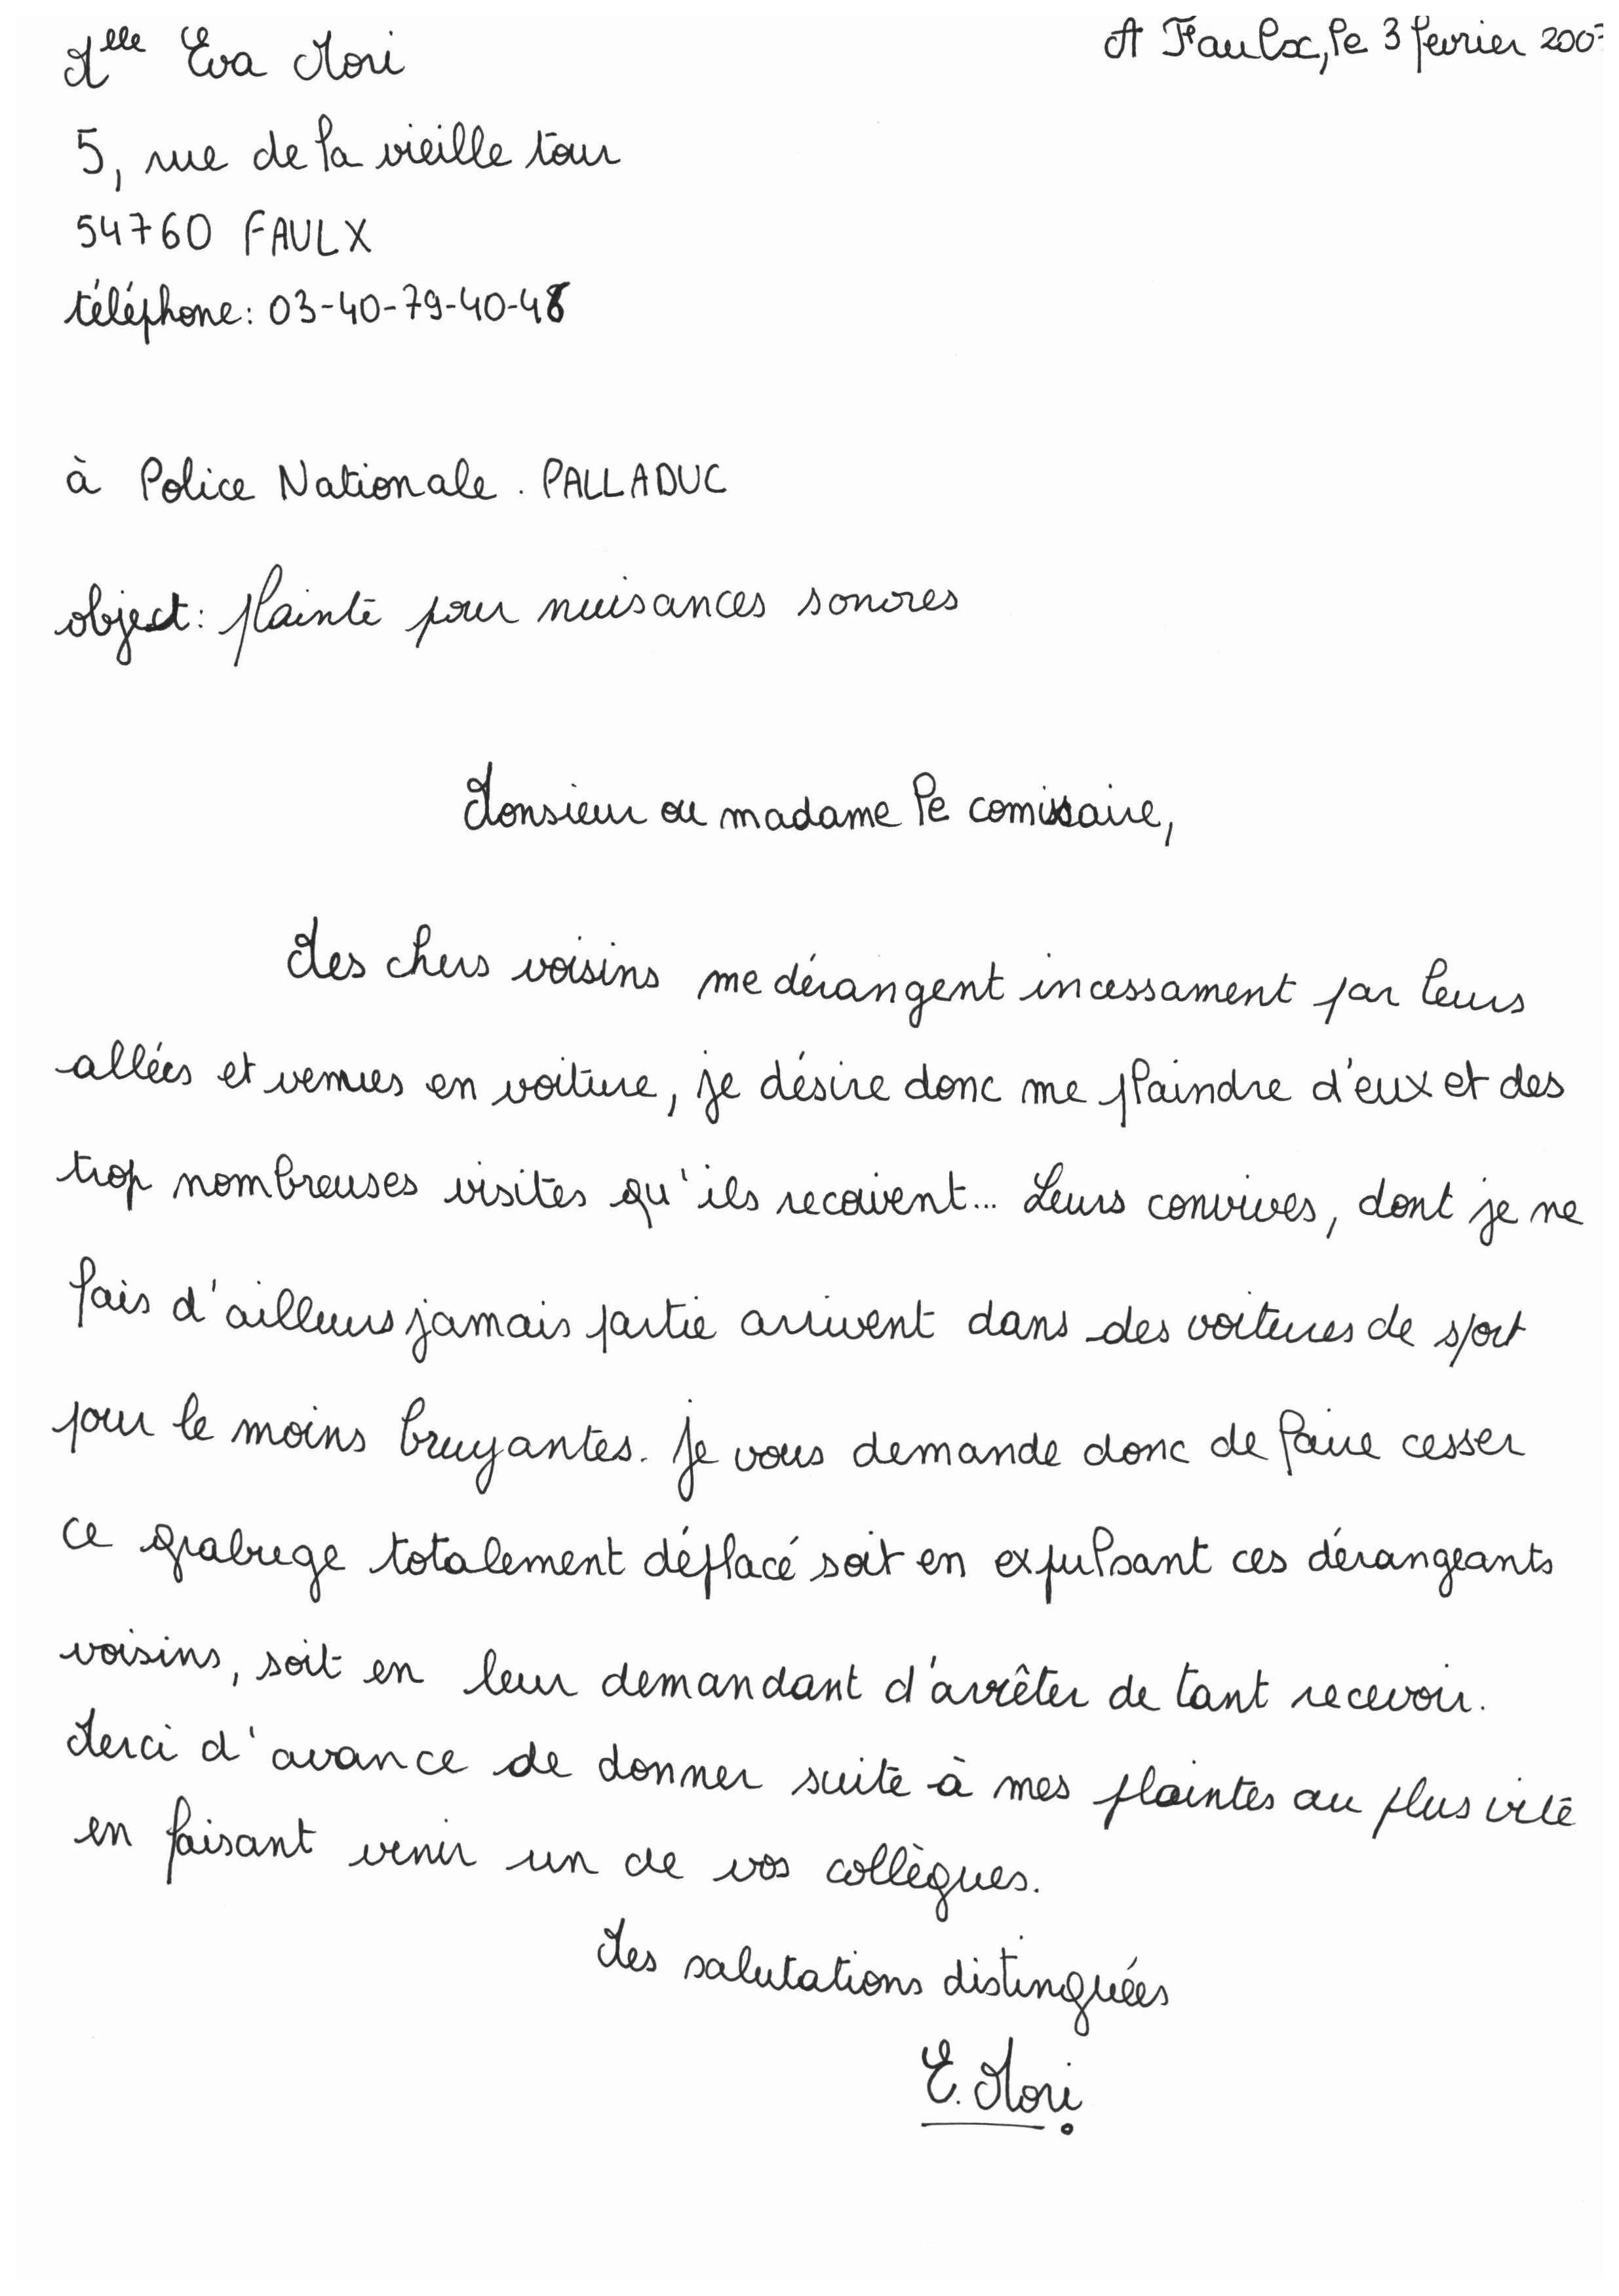 Mlle Eva Mori
A Faulx, le 3 fevrier
5, rue de la vieille tour
54760 FAULX
téléphone: 03-40-79-40-48
à Police Nationale. PALLADUC
object: plainte pour nuisances sonores
Monsieur ou madame le comissaire,
Mes chers voisins me dérangent incessament par leurs
allées et venues en voiture, je désire donc me plaindre d'eux et des
trop nombreuses visites qu'ils recoivent... Leurs convives, dont je ne
fais d'ailleurs jamais partie arrivent dans des voitures de sport
pour le moins bruyantes. Je vous demande donc de faire cesser
ce grabuge totalement déplacé soit en expulsant ces dérangeants
voisins, soit en leur demandant d'arrêter de tant recevoir.
Merci d'avance de donner suite à mes plaintes au plus vite
en faisant venir un de vos collègues.
Mes salutations distinguées
E. Mori